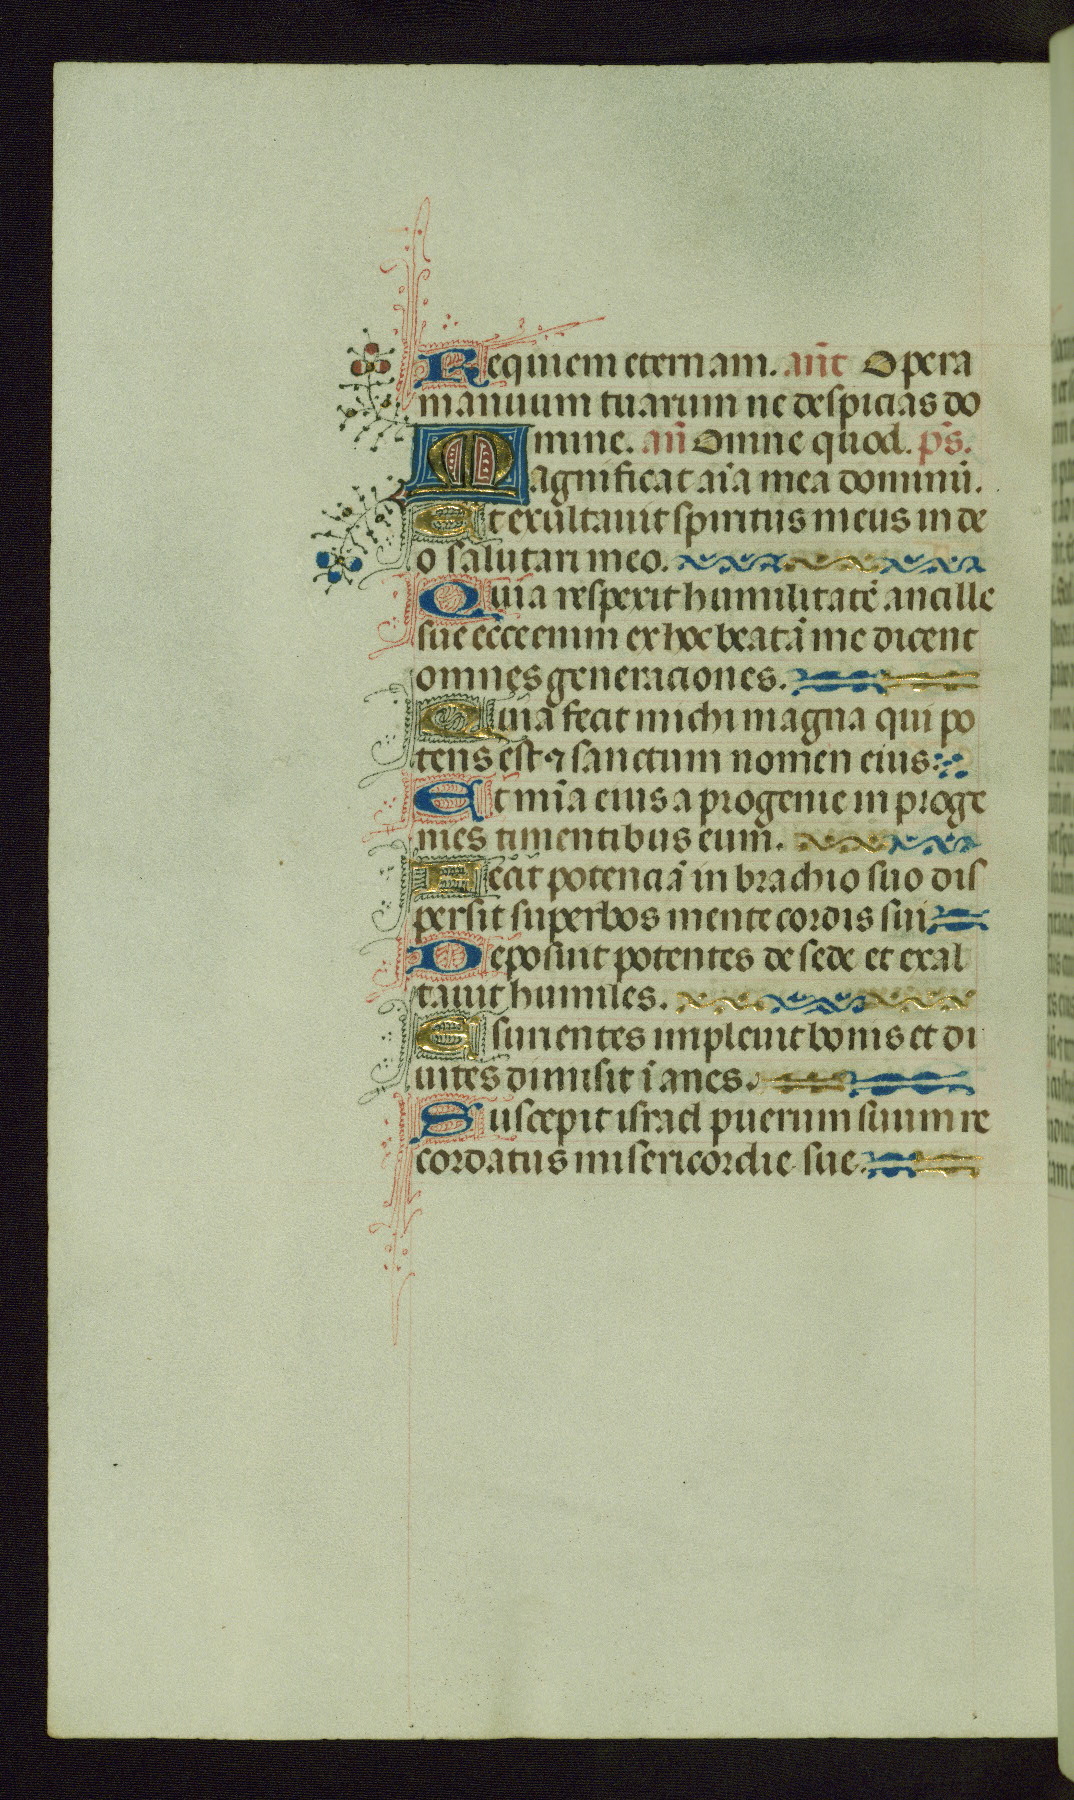 Requiem eternam. añt Opera
manuum tuarum ne despicias do
mine. añ Omne quod. ps̄.
Magnificat aīa mea dominū.
Et exultauit spiritus meus in de
o salutari meo.
Quia respexit humilitatē ancille
sue ecce enim ex hoc beatā me dicent
omnes generaciones.
Quia fecit michi magna qui po
tens est ⁊ sanctum nomen eius
Et mīa eius a progenie in proge
nies timentibus eum.
Fecit potenciā in brachio suo dis
persit superbos mente cordis sui.
Deposuit potentes de sede et exal
tauit humiles.
Esurientes impleuit bonis et di
uites dimisit īanes.
Suscepit israel puerum suum re
cordatus misericordie sue.